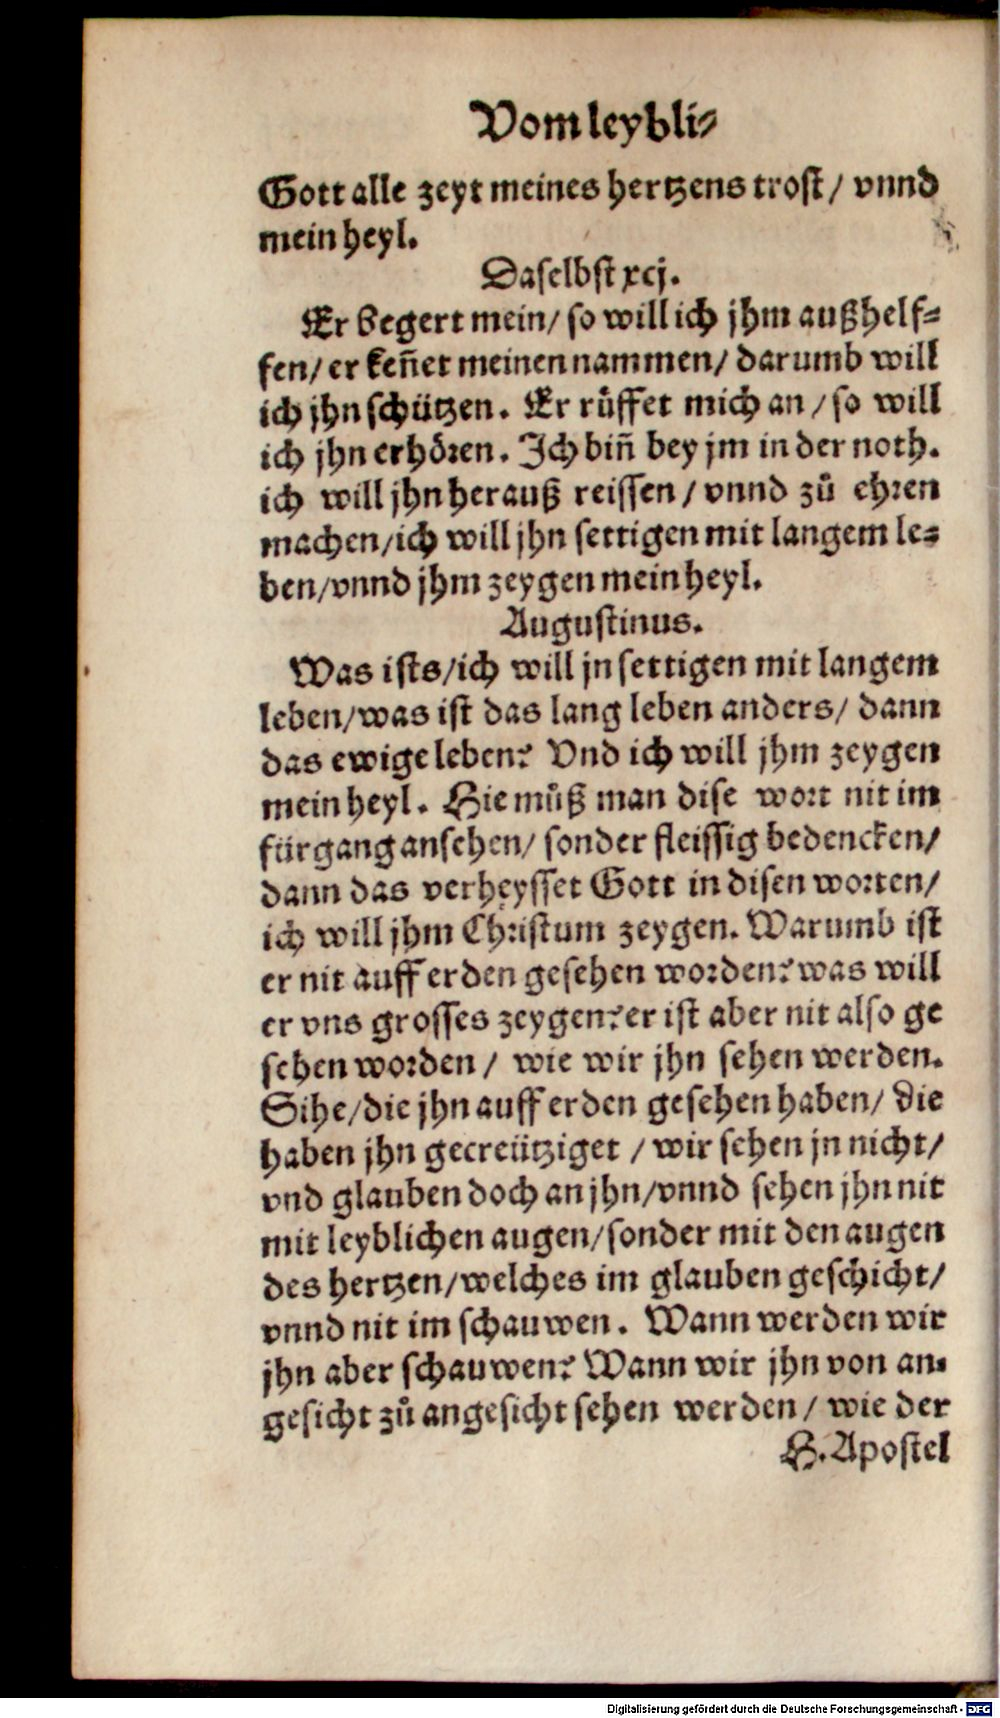 Vom leybli⸗
Gott alle zeyt meines hertzens trost / vnnd
mein heyl.
Daselbst xcj.
Er begert mein / so will ich jhm außhelf⸗
fen / er keñet meinen nammen / darumb will
ich jhn schützen. Er růffet mich an / so will
ich jhn erhören. Ich biñ bey jm in der noth.
ich will jhn herauß reissen / vnnd zů ehren
machen / ich will jhn settigen mit langem le⸗
ben / vnnd jhm zeygen mein heyl.
Augustinus.
Was ists / ich will jn settigen mit langem
leben / was ist das lang leben anders / dann
das ewige leben? Vnd ich will jhm zeygen
mein heyl. Hie můß man dise wort nit im
fürgang ansehen / sonder fleissig bedencken /
dann das verheysset Gott in disen worten /
ich will jhm Christum zeygen. Warumb ist
er nit auff erden gesehen worden? was will
er vns grosses zeygen? er ist aber nit also ge
sehen worden / wie wir jhn sehen werden.
Sihe / die jhn auff erden gesehen haben / die
haben jhn gecreütziget / wir sehen jn nicht /
vnd glauben doch an jhn / vnnd sehen jhn nit
mit leyblichen augen / sonder mit den augen
des hertzen / welches im glauben geschicht /
vnnd nit im schauwen. Wann werden wir
jhn aber schauwen? Wann wir jhn von an⸗
gesicht zů angesicht sehen werden / wie der
H. Apostel
Digitalisierung gefördert durch die Deutsche Forschungsgemeinschaft - DFG